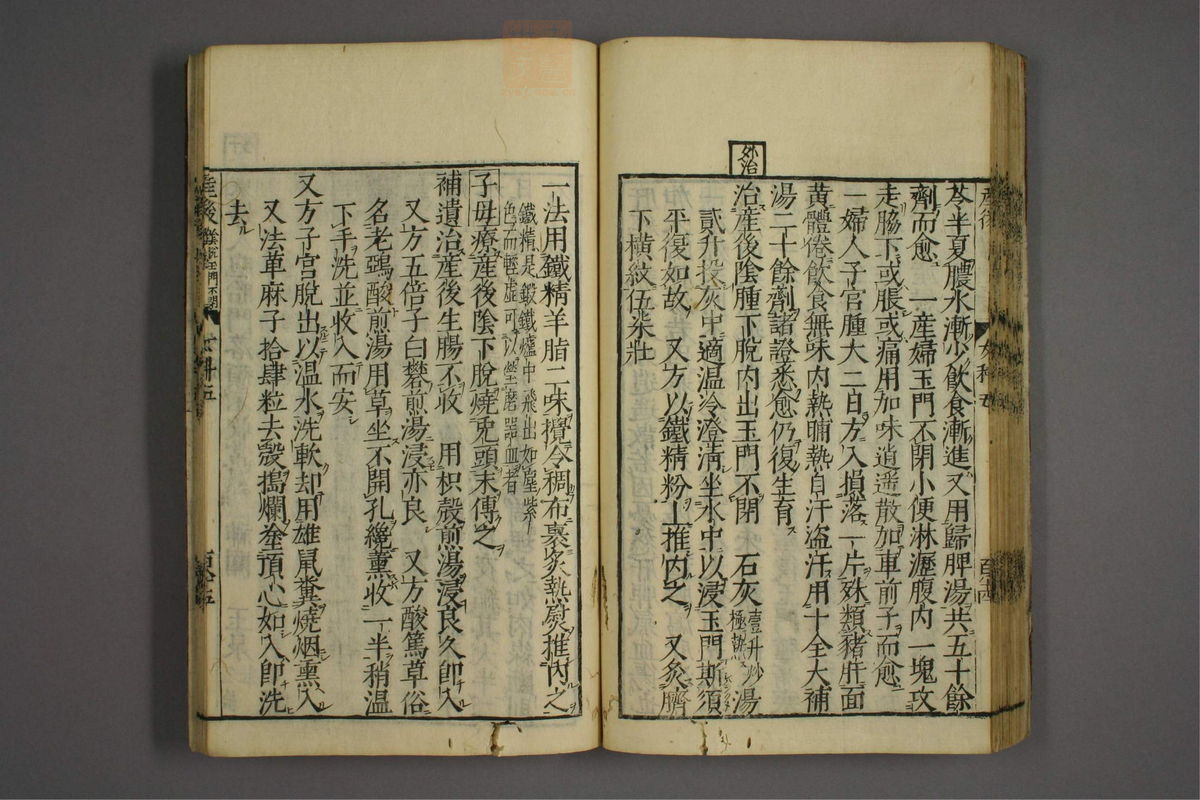 外治
芩半夏膿水漸少飲食漸進又用歸脾湯共五十餘
劑而愈 一產婦玉門不閉小便淋瀝腹內一塊攻
走脇下或脹或痛用加味逍遥散加車前子而愈
一婦人子宮腫大二日方入損落一片殊類豬肝面
黃體倦飲食無味內熱晡熱自汗盜汗用十全大補
湯二十餘劑諸證悉愈仍復生育
治產後陰腫下脫內出玉門不閉 石灰壹升炒極熱湯
貳升投灰中適温冷澄淸坐水中以浸玉門斯須
平復如故 又方以鐵精粉上推內之 又灸臍
下橫紋伍柒壯
一法用鐵精羊脂二味攪令稠布裹炙熱熨推內之
鐵精是鍛鐵爐中飛出如塵紫
色而輕虛可以瑩磨器皿者
子母療產後陰下脫燒兎頭末傅之
補遺治產後生腸不收 用枳殼煎湯浸良久卽入
又方五倍子白礬煎湯浸亦良 又方酸篤草俗
名老鵶酸煎湯用草坐不開孔纔薰收一半稍温
下手洗並收入而安
又方子宮脫出以温水洗軟却用雄鼠糞燒烟熏入
又法萆麻子拾肆粒去殼擣爛塗頂心如入卽洗
去